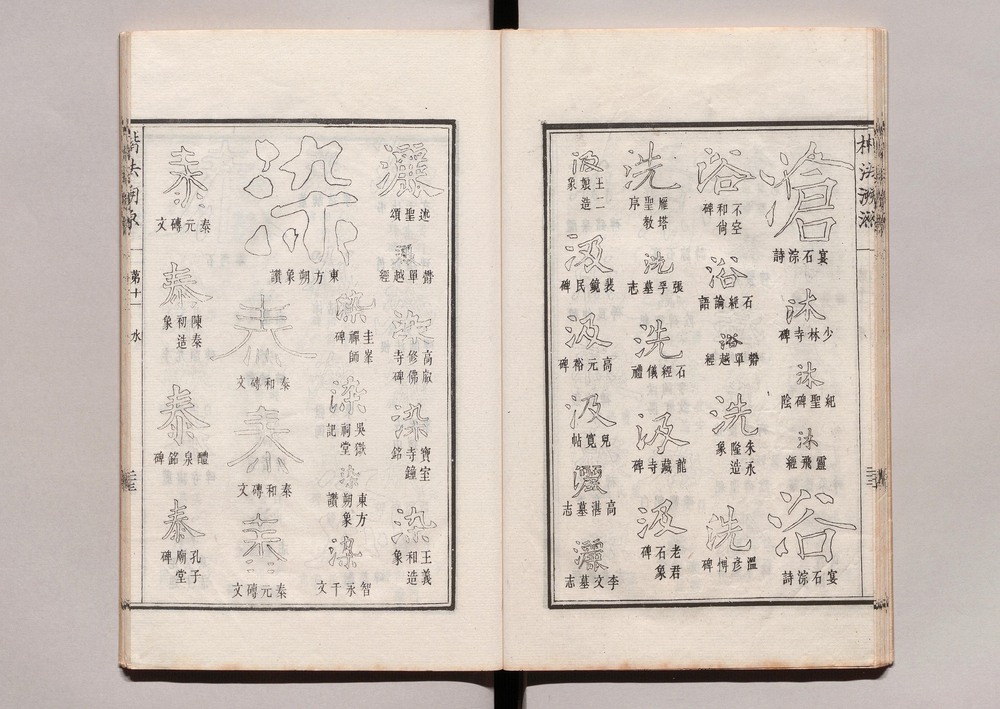 楷法溯源
滄
宴石淙詩
沐
少林寺碑
沐
紀聖碑陰
沐
靈飛經
浴
宴石淙詩
浴
不空
和尚
碑
浴
石經論語
浴
欝單越經
洗
朱永
隆造
象
洗
溫彥博碑
洗
雁塔
聖教
序
洗
張孚墓志
洗
石經儀禮
汲
龍藏寺碑
汲
老君
石象
碑
汲
王二
娘造
象
汲
裴鏡民碑
汲
高元裕碑
汲
兒寬帖
灑
高湛墓志
灑
李文墓志
灑
述聖頌
灑
欝單越經
染
高叡
修佛
寺碑
染
寶室
寺鐘
銘
染
王義
和造
象
染
東方朔象讚
染
圭峯
禪師
碑
染
吳嶽
祠堂
記
染
東方
朔象
讚
染
智永千文
泰
泰和磚文
泰
泰和磚文
泰
泰元磚文
泰
泰元磚文
泰
陳泰
初造
象
泰
醴泉銘碑
泰
孔子
廟堂
碑
楷法溯源
第十一
水